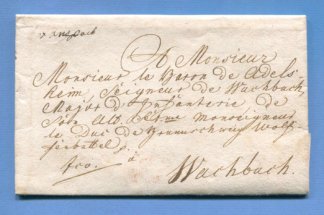 A Monsieur
Monsieur le Baron de Adels
heim, Seigneur de Wachbach,
Major d'Infanterie de
Son Alt. Monseigneur
le Duc de Brunschweig Wolf-
fenbettel
fco. à
Wachbach.